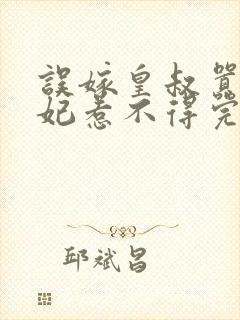 誤嫁皇叔
妃惹不得完
邱斌昌